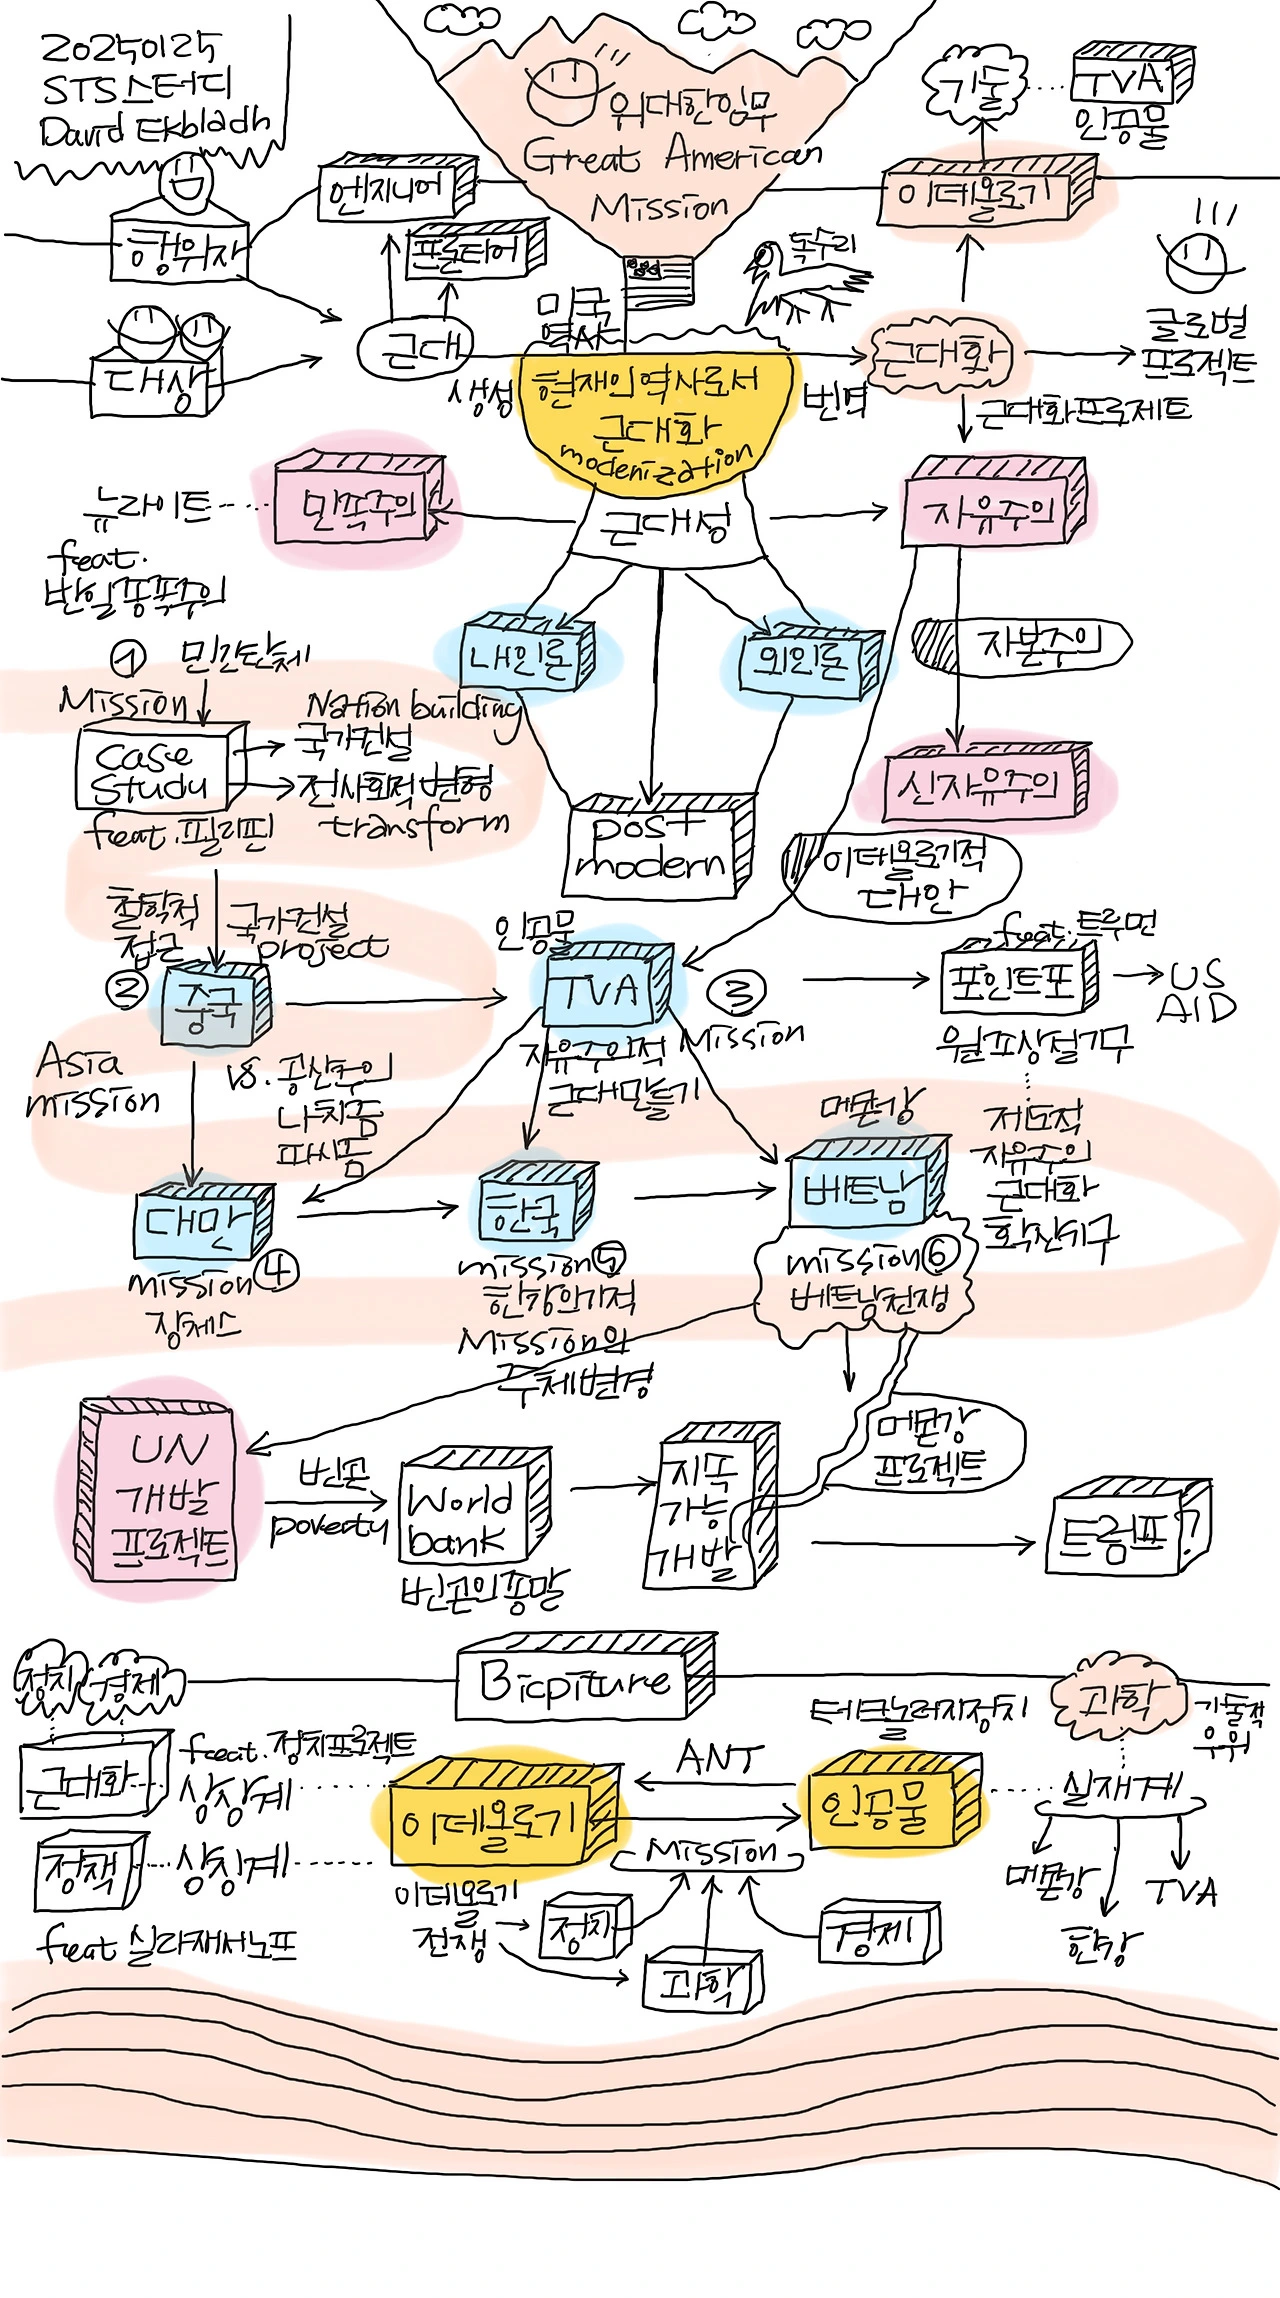 20250125
STS스터디
David Ekbladh
위대한임무
Great American
Mission
기술
TVA
인공물
엔지니어
이데올로기
행위자
프론티어
독수리
미국
역사
근대
대상
생성
현재의역사로서
근대화
modenization
번역
근대화
글로벌
프로젝트
근대화프로제트
뉴라이트
민족주의
근대성
자유주의
feat.
반일종족주의
내인론
외인론
자본주의
① 민간단체
Mission
Nation building
국가건설
case
study
전사회적변형
transform
feat.필리핀
신자유주의
post
modern
이데올로기적
대안
철학적
접근
국가건설
project
인공물
feat.트루먼
②
중국
TVA
③
Mission
포인트포
US
AID
원조상설기구
Asia
mission
vs. 공산주의
나치즘
파시즘
자유주의적
근대만들기
메콘강
제도적
자유주의
근대화
확산기구
대만
한국
베트남
mission④
장제스
mission⑤
한강의기적
Mission의
주체변경
mission⑥
베트남전쟁
UN
개발
프로젝트
빈곤
poverty
World
bank
빈곤의종말
지속
가능
개발
메콘강
프로젝트
트럼프?
정치
경제
Bicpiture
과학
기술적
우위
테크놀러지장치
근대화
feeat.정치프로젝트
상상계
이데올로기
ANT
인공물
실재계
정책
상징계
Mission
메콘강
TVA
한강
이데올로기
전쟁
정치
경제
과학
feat 실라재서노프